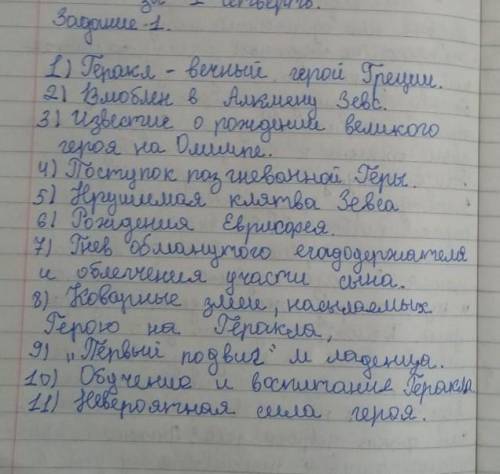 за 1 четверть.
Задание-1.
1) Геракл - вечный герой Греции.
2) Влюблен в Алкмену Зевс.
3) Известие о рождении великого
героя на Олимпе.
4) Поступок пазгневанной Геры.
5) Нрушимая клятва Зевса
6) Рождения Еврисфея.
7) Гнев обманутого егадодержателя
и облегчения участи сына.
8) Коварные змеи, насылаемых
Герою на Геракла,
9) „Первый подвиг" младенца.
10) Обучение и воспитание Геракла
11) Невероятная сила героя.